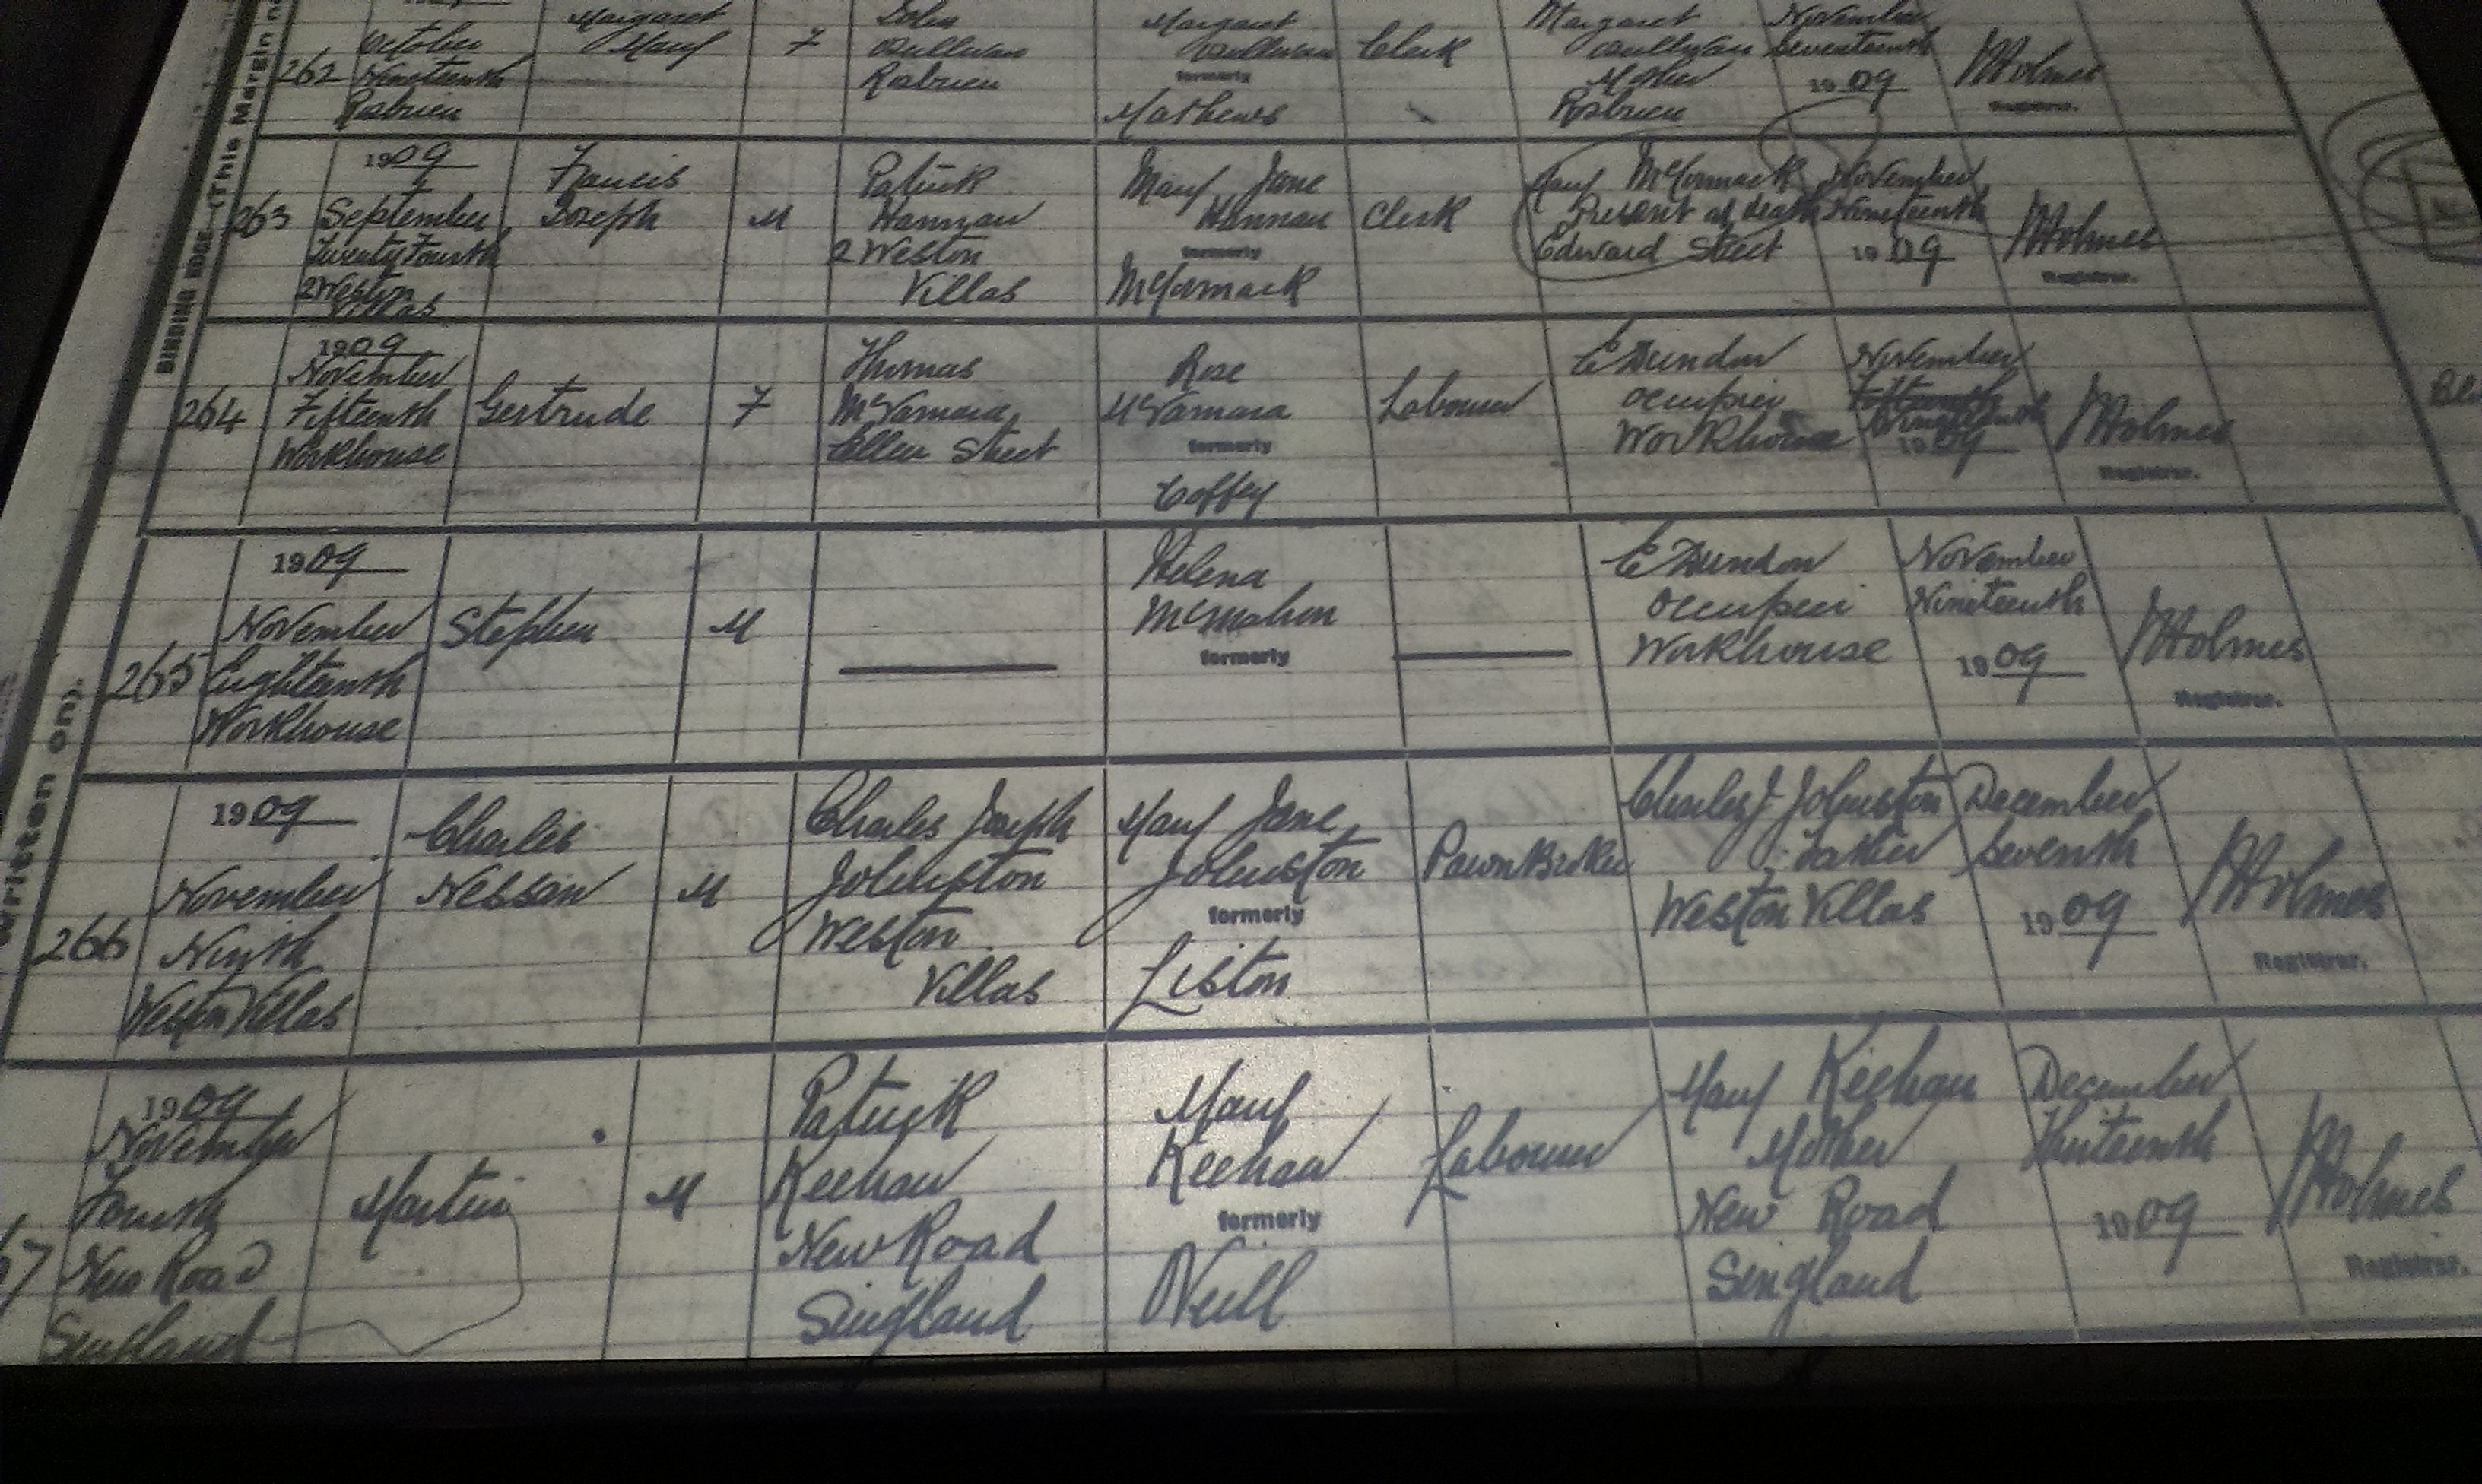 BINDING EDGE—(This Margin n
written on).
262
October
Nineteenth
Rosbrien
Margaret
Mary
F
John
Sullivan
Rosbrien
Margaret
Sullivan
formerly
Mathews
Clerk
Margaret
Sullivan
Mother
Rosbrien
November
Seventeenth
1909
Holmes
Registrar.
263
1909
September
Twenty Fourth
2 Weston
Villas
Francis
Joseph
M
Patrick
Hannan
2 Weston
Villas
Mary Jane
Hannan
formerly
McCormack
Clerk
Mary McCormack
Present at death
Edward Street
November
Nineteenth
1909
Holmes
Registrar.
264
1909
November
Fifteenth
Workhouse
Gertrude
F
Thomas
McNamara
Ellen Street
Rose
McNamara
formerly
Coffey
Labourer
E Dundon
occupier
Workhouse
November
Fifteenth
Nineteenth
1909
Holmes
Registrar.
265
1909
November
Eighteenth
Workhouse
Stephen
M
Helena
McMahon
formerly
E Dundon
occupier
Workhouse
November
Nineteenth
1909
Holmes
Registrar.
266
1909
November
Ninth
Weston Villas
Charles
Nessan
M
Charles Joseph
Johnston
Weston
Villas
Mary Jane
Johnston
formerly
Liston
PawnBroker
Charles J Johnston
Father
Weston Villas
December
Seventh
1909
Holmes
Registrar.
7
1909
November
Fourth
New Road
Singland
Martin
M
Patrick
Keehan
New Road
Singland
Mary
Keehan
formerly
ONeill
Labourer
Mary Keehan
Mother
New Road
Singland
December
Thirteenth
1909
Holmes
Registrar.